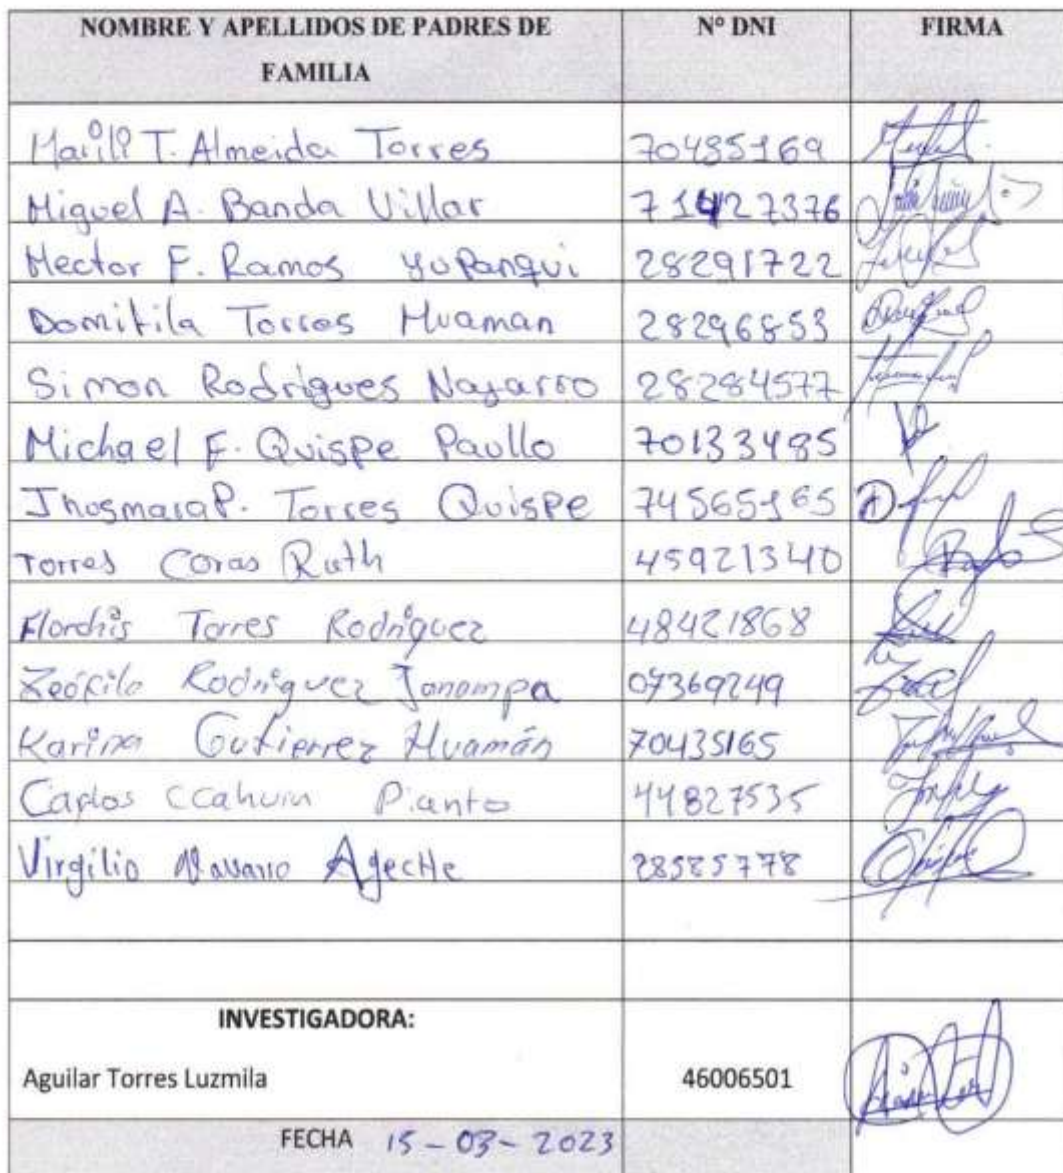 NOMBRE Y APELLIDOS DE PADRES DE FAMILIA Nº DNI FIRMA
Marili T. Almeida Torres 70435169
Miguel A. Banda Villar 71427376
Hector F. Ramos Yupanqui 28291722
Domitila Torres Huaman 28296853
Simon Rodrigues Nayarro 28284577
Michael F. Quispe Paullo 70133485
Jhosmara P. Torres Quispe 74565165
Torres Coras Ruth 45921340
Flordhis Torres Rodriguez 48421868
Zeófilo Rodriguez Janampa 07369249
Karina Gutierrez Huamán 70435165
Carlos Ccahuin Pianto 44827535
Virgilio Navarro Agectte 28585778
INVESTIGADORA:
Aguilar Torres Luzmila 46006501
FECHA 15-03-2023